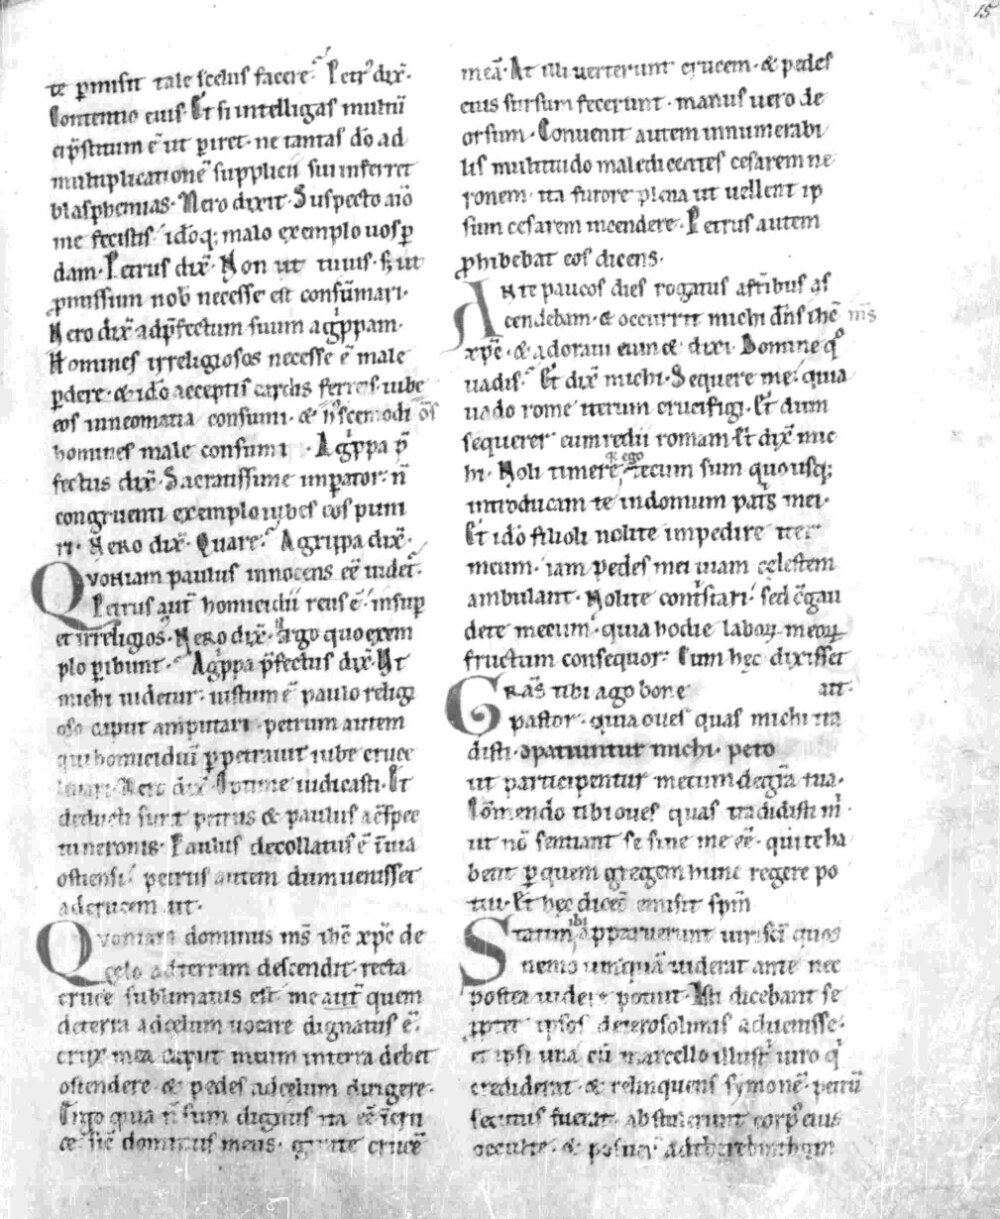 15
te p̱misit tale scelus facere. Petr᷒ dix̄.
Contentio eius. Et si intelligas multū
cip̄stitum ē ut ꝑiret. ne tantas dō ad
multiplicationē supplicii sui inferret
blasphemias. Nero dixit. Suspecto aīo
me fecistis idoq; malo exemplo uos ꝑ
dam. Petrus dix̄. Non ut tu uis. s; ut
ꝓmissum nob̄ necesse est consūmari.
Nero dix̄ ad p̄fectum suum agͥppam.
Homines irreligiosos necesse ē male
ꝑdere. & idō acceptis cardis ferreis iube
eos consumi. & hͥ scemodi oēs
homines male consumi. Agͥppa p̄
fectus dix̄. Sacratissime imꝑator. n̄
congruenti exemplo iubes eos puni
ri. Nero dix̄. Quare. Agrippa dix̄.
Quoniam paulus innocens eē uidet᷒.
Petrus aut̄ homicidii reus ē. insuꝑ
et irreligios᷒. Nero dix̄. Ergo quo exem
plo ꝑibunt. Agͥppa p̄fectus dix̄. Ut
michi uidetur. iustum ē paulo religi
oso caput amputari. petrum autem
qui homicidiū ꝑpetrauit iube cruce
leuari. Nero dix̄. Optime iudicasti. Et
deducti sunt petrus & paulus a c̄spec
tu neronis. Paulus decollatus ē ī uia
ostiensi. petrus autem dum uenisset
ad crucem ait.
Quoniam dominus ms̄ ihc̄ xp̄c de
celo ad terram descendit. recta
cruce sublimatus est. me aut̄ quem
de terra ad celum uocare dignatus ē.
crux mea caput meum in terra debet
ostendere. & pedes ad celum dirigere.
Ergo quia n̄ sum dignus ita eē ī cru
ce sic̄ dominus meus. girate crucē
meā. At illi uerterunt crucem. & pedes
eius sursum fecerunt. manus uero de
orsum. Conuenit autem innumerabi
lis multitudo maledicentes cesarem ne
ronem. ita furore plena ut uellent ip
sum cesarem incendere. Petrus autem
ꝓhibebat eos dicens.
Ante paucos dies rogatus a fr̄ibus as
cendebam. & occurrit michi dn̄s ihc̄ ms̄
xp̄c. & adoraui eum & dixi. Domine qͦ
uadis. Et dix̄ michi. Sequere me. quia
uado rome iterum crucifigi. Et dum
sequerer eum redii romam. Et dix̄ mic
hi. Noli timere q̄ ego tecum sum quousq;
introducam te in domum patͥs mei.
Et idō filioli nolite impedire iter
meum. iam pedes mei uiam celestem
ambulant. Nolite contͥstari. sed c̄gau
dete mecum. quia hodie laboꝝ meoꝝ
fructum consequor. Cum hęc dixisset
ait.
Gratͣs tibi ago bone
pastor. quia oues quas michi tra
didisti. patiuntur michi. peto
ut participentur mecum de gͣtia tua.
Com̄endo tibi oues quas tradidisti m͂.
ut nō sentiant se sine me eē. qui te ha
bent ꝑ quem gregem hunc regere po
tui. Et hęc dicēs emisit spm̄
Statim ibi apparuerunt uiri sc̄i quos
nemo umquā uiderat ante nec
postea uidere potuit. Isti dicebant se
ꝓpter ipsos de ierosolimis aduenisse.
et ipsi una cū marcello illustͥ uiro qͥ
crediderat. & relinquens symonē. petrū
secutus fuerat. abstulerunt corp᷒ eius
occulte. & posuer̄ ad therebinthum